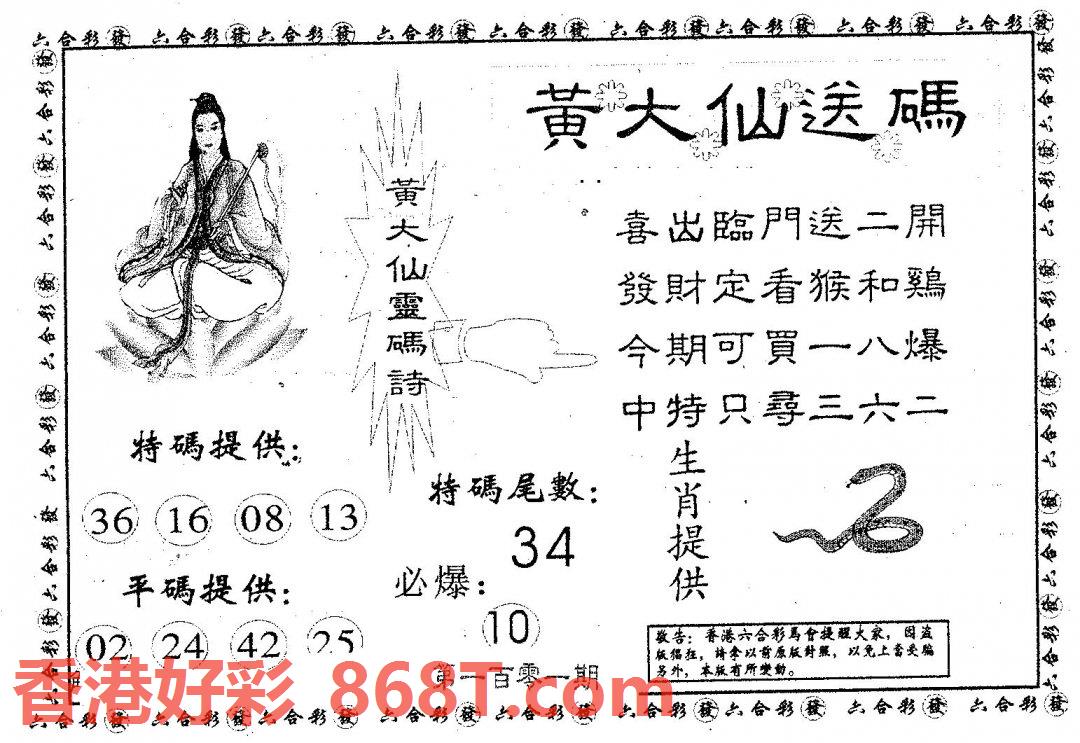 六合彩發 六合彩發 六合彩發 六合彩發 六合彩發 六合彩發 六合彩發 六合彩發 六合彩發
黃大仙送碼
黃大仙靈碼詩
喜出臨門送二開
發財定看猴和鷄
今期可買一八爆
中特只尋三六二
特碼提供：
36 16 08 13
平碼提供：
02 24 42 25
特碼尾數：
34
必爆：
10
第一百零一期
生肖提供
敬告：香港六合彩馬會提醒大家，因盜
版猖狂，請拿以前原版對照，以免上當受騙
另外，本版有所變動。
香港好彩 868T.com
六合彩發 六合彩發 六合彩發 六合彩發 六合彩發 六合彩發 六合彩發 六合彩發 六合彩發